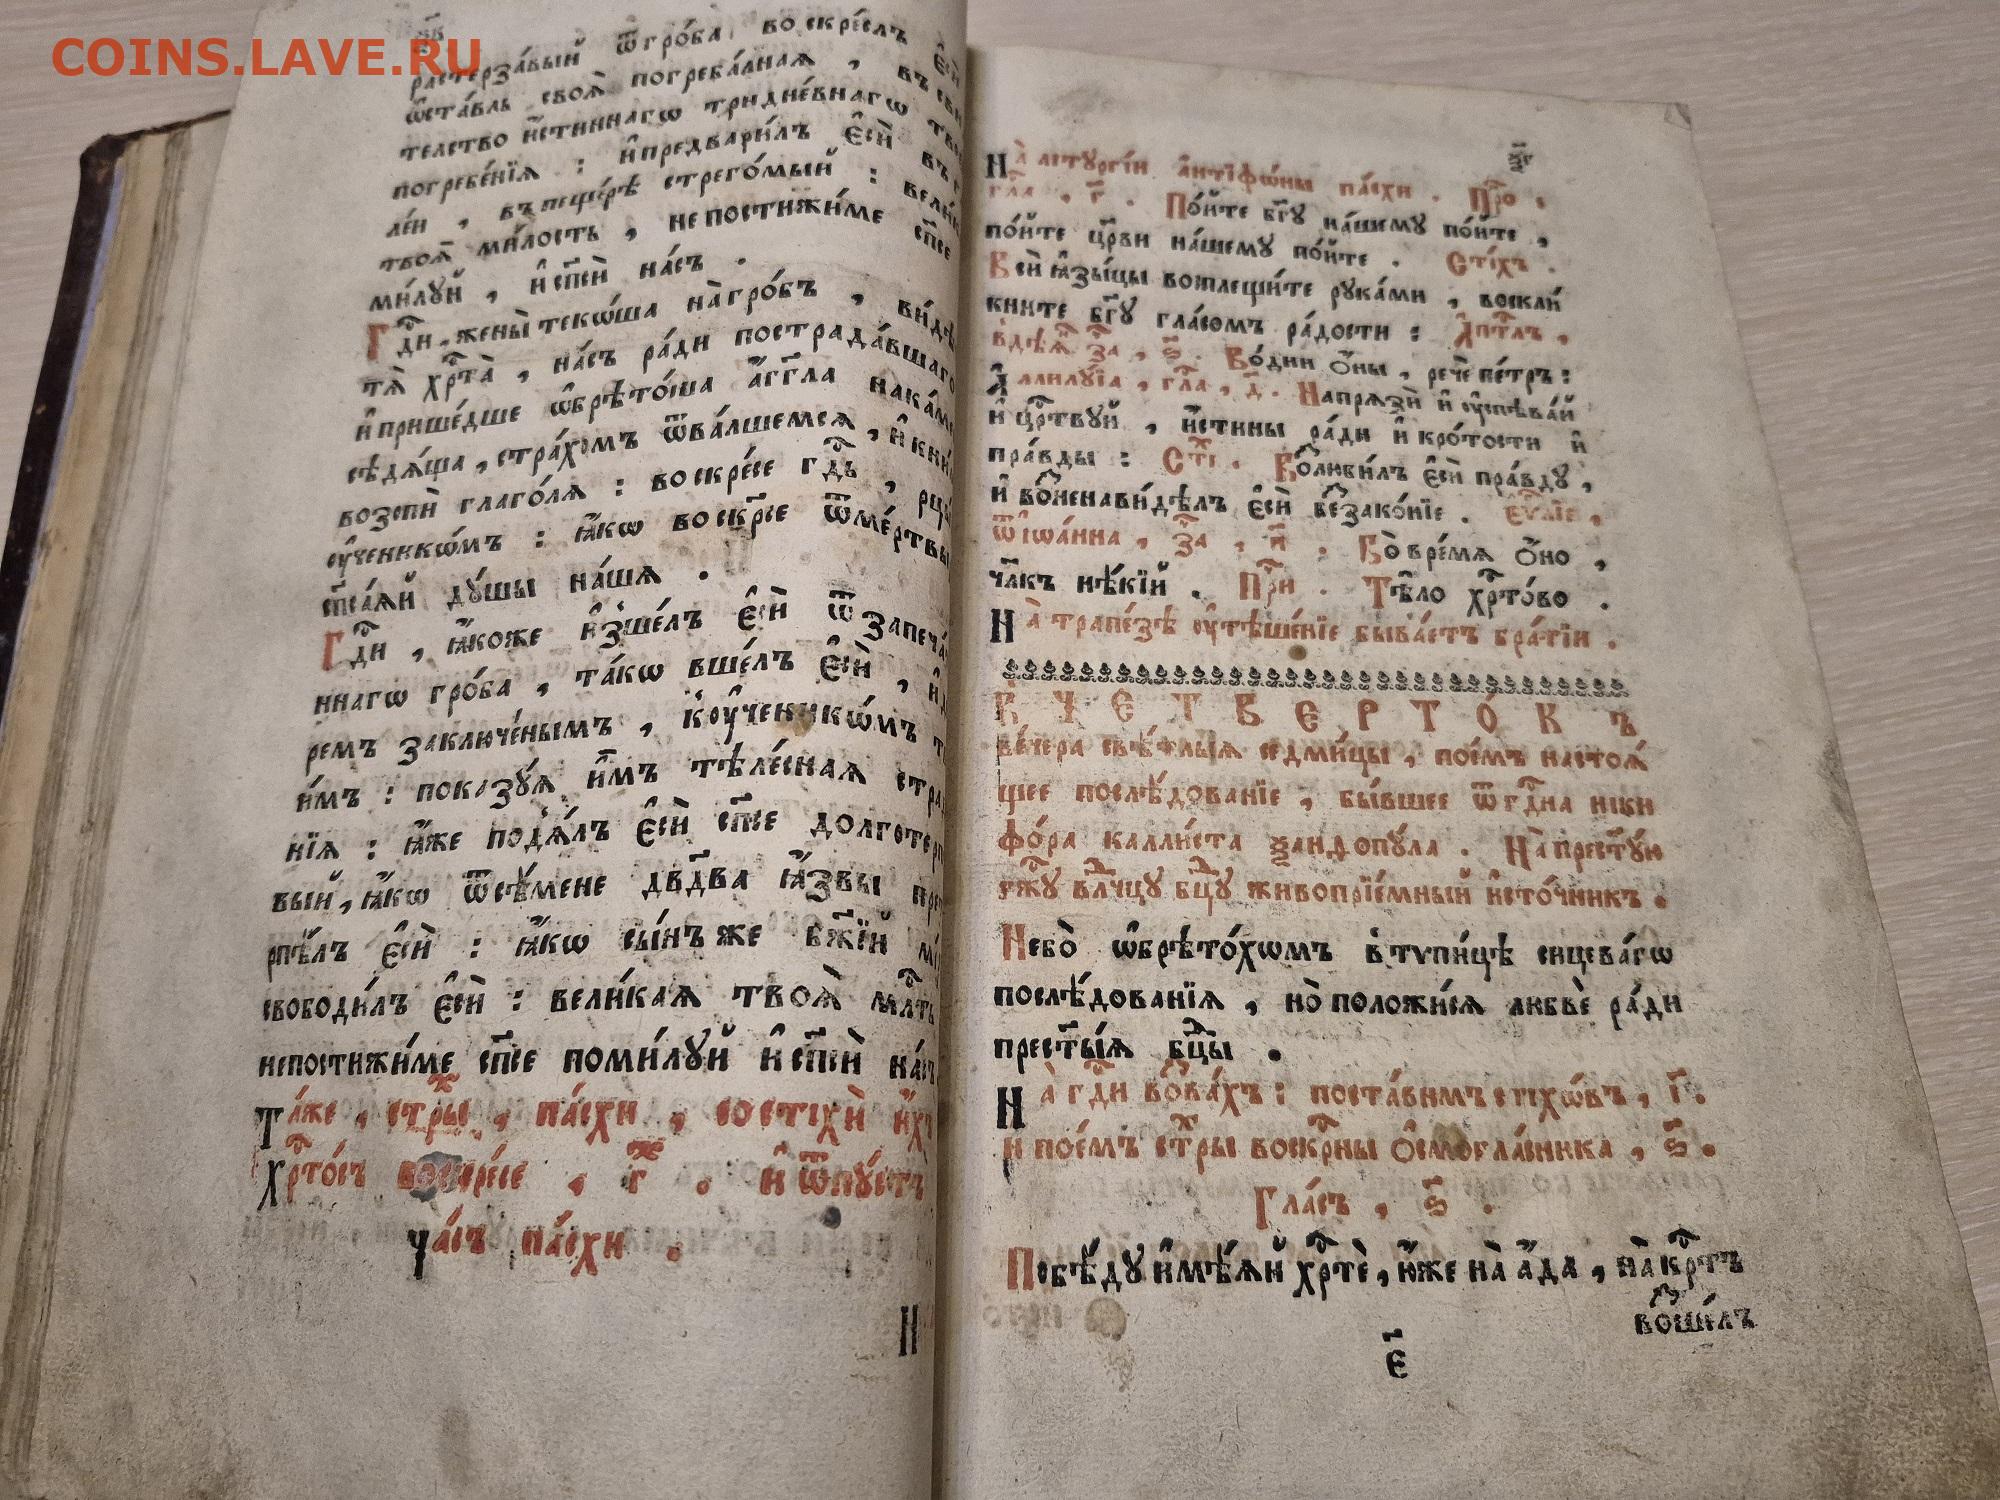 COINS.LAVE.RU
ѯв
растерза́вый ѿгро́ба воскре́слъ є҆сѝ
ѡ҆ста́вль своѧ̀ погреба́лнаѧ , въ сви
телство и҆́стиннагѡ тридне́внагѡ тво
погребе́нїѧ : и҆предвари́лъ є҆сѝ въ г
ле́и , въ пеще́рѣ стрего́мый : вели́к
твоѧ̀ ми́лость , непостижи́ме сп҃се
ми́луй , и҆ сп҃сѝ на́съ .
Гд҇и , жены̀ текѡ́ша на̀гро́бъ , ви́дѣ
тѧ̀ хр҇та̀ , на́съ ра́ди пострада́вшаго
и҆прише́дше ѡ҆брѣто́ша а҆́гг҃ла нака́ме
сѣдѧ́ща , стра́хомъ ѿва́лшемсѧ , и҆ кни́
возспѝ глаго́лѧ : воскре́се гд҇ь , рцы́
ᲂу҆ченикѡ́мъ : ꙗ҆́кѡ воскр҃се ѿме́ртвы
сп҃са́ѧй ду́шы на́шѧ .
Гд҇и , ꙗ҆́коже и҆зше́лъ є҆сѝ ѿ запеча́
ннагѡ гро́ба , та́кѡ вше́лъ є҆сѝ , и҆д
ремъ заключе́нымъ , коу҆ченикѡ́мъ т
и́мъ : показу́ѧ и҆́мъ тѣле́снаѧ стра
нїѧ : ꙗ҆́же подъѧ́лъ є҆сѝ сп҃се долготерп
вый , ꙗ҆́кѡ ѿсѣ́мене дв҃два ꙗ҆́звы пре
рпѣ́лъ є҆сѝ : ꙗ҆́кѡ сы́нъ же бж҃їй мі
свободи́лъ є҆сѝ : вели́каѧ твоѧ̀ мл҇ть
непостижи́ме сп҃се поми́луй и҆ сп҃сѝ на́съ
Та́же , ст҇ры , па́схи , состіхѝ и҆́хъ
Хр҇то́съ воскре́се , г҃ . и҆ ѿпу́стъ
ча́съ па́схи .
И
ѯг
На̀ літургі́и а҆нтїфѡ́ны па́схи . Про҇ ,
гла҇ , г҃ . По́йте бг҃у на́шему по́йте ,
по́йте цр҃ви на́шему по́йте . Сті́хъ .
Всѝ ꙗ҆зы́цы восплещи́те рука́ми , воскли́
кните бг҃у гла́сомъ ра́дости : А҆пт҇лъ ,
вдѣѧ҇ за҇ , ѕ҃ . Водни ѻ҆́ны , рече пе́тръ :
А҆ллилꙋ́їа , гла҇ , д҃ . Напрѧзѝ и҆ ᲂу҆спѣва́й
и҆ цр҇твуй , и҆́стины ра́ди и҆ кро́тости и҆
пра́вды : Сті҇ . Возлюби́лъ є҆сѝ пра́вду ,
и҆ возненави́дѣлъ є҆сѝ беззако́нїе . Є҆ѵ҃лїе ,
ѿ і҆ѡа́нна , за҇ , и҃ . Во̀ вре́мѧ ѻ҆́но ,
чл҃къ нѣ́кїй . При҇ . Тѣ́ло хр҇то́во .
На̀ трапе́зѣ ᲂу҆тѣше́нїе быва́етъ бра́тїи .
В̾ ЧЕТВЕРТО́КЪ
ве́чера свѣ́тлыѧ седми́цы , пое́мъ настоѧ́
щее послѣ́дованїе , бы́вшее ѿгд҇на ніки
фо́ра каллі́ста ѯандопу́ла . На̀ прест҃у́ю
гж҇у вл҇чцу бц҇у живопрїе́мный и҆сто́чникъ .
Небо̀ ѡ҆брѣто́хомъ в̾тупи́цѣ сицева́гѡ
послѣ́дованїѧ , но̀ положи́сѧ любвѐ ра́ди
прест҃ы́ѧ бц҇ы .
На̀ гд҇и воззва́хъ : поста́вимъ стіхѡ́въ , г҃ .
и пое́мъ ст҇ры воскр҇ны ѻ҆смогла́сника , ѕ҃ .
Гла́съ , ѕ҃ .
Побѣ́ду и҆мѣ́ѧй хр҇тѐ , ю҆́же на̀ а҆́да , на̀ кр҇тъ
возше́лъ
є҃